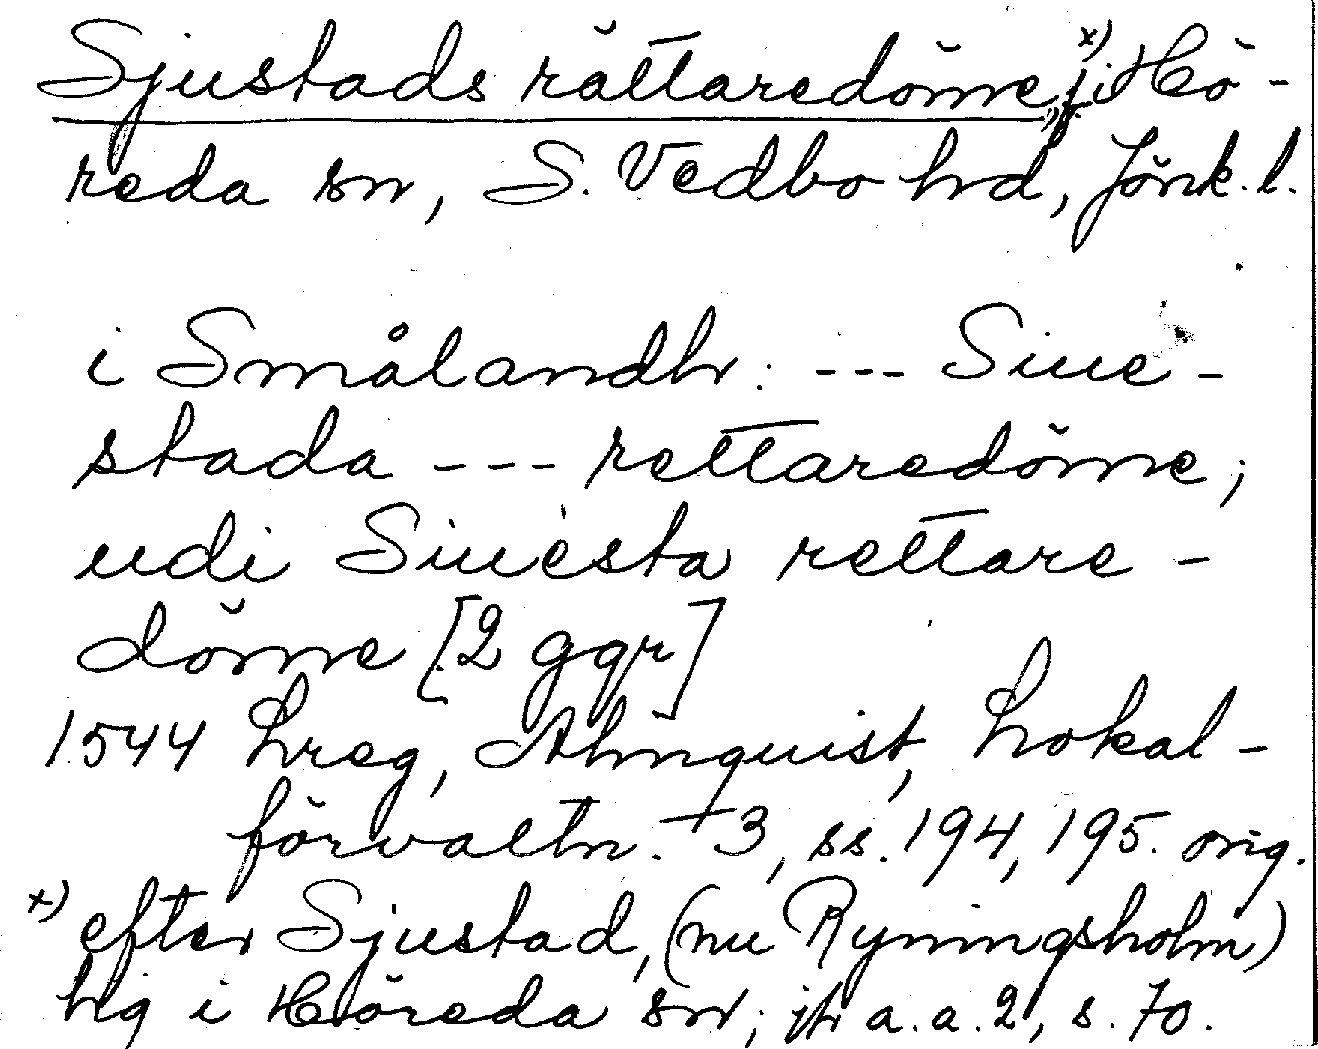 Sjustads rättaredöme, x) i Hö-
reda sn, S. Vedbo hd, Jönk. l.
i Smålandh: --- Siue-
stada --- rettaredöme;
udi Siuesta rettare-
döme [2 ggr]
1544 Lreg, Almquist, Lokal-
förvaltn. 3, ss. 194, 195. orig.
x) efter Sjustad, (nu Ryningsholm)
hg i Höreda sn; jfr a.a. 2, s. 70.